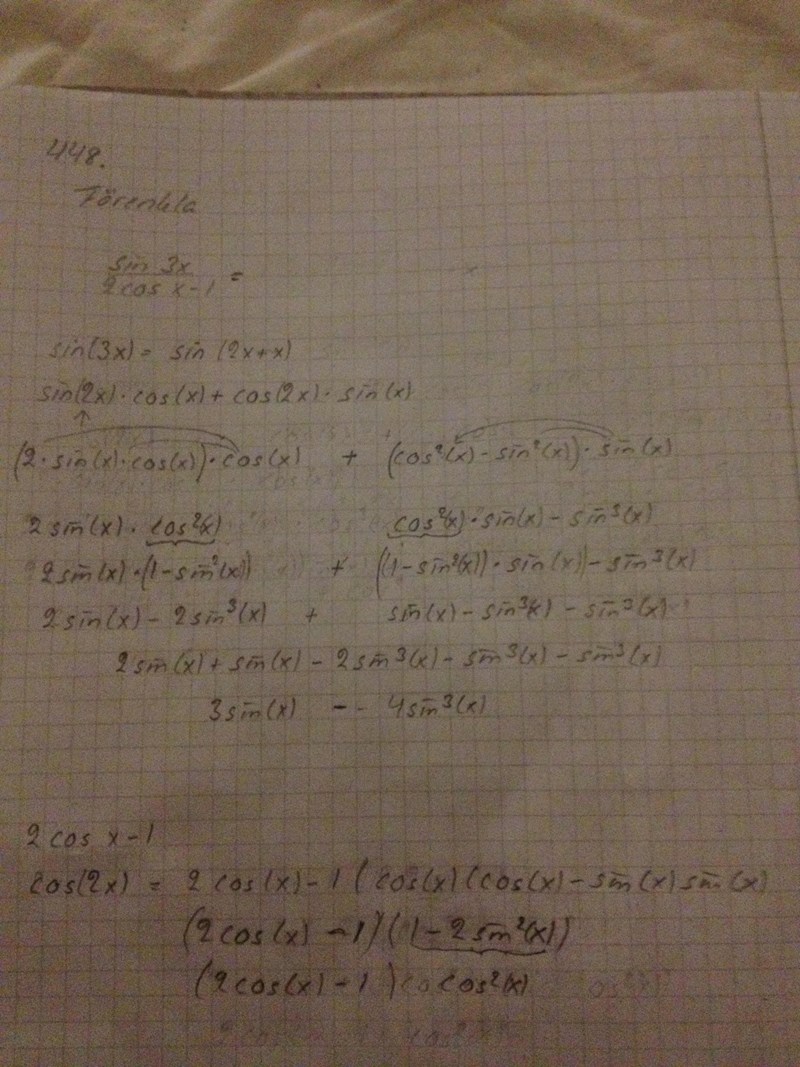 448.
Förenkla
sin 3x / 2cos x-1 =
sin(3x) = sin (2x+x)
sin(2x)·cos(x) + cos(2x)·sin(x)
(2·sin(x)·cos(x))·cos(x) + (cos²(x) - sin²(x))·sin(x)
2 sin(x)·cos²(x) cos²(x)·sin(x) - sin³(x)
2sin(x)·(1-sin²(x)) + ((1-sin²(x))·sin(x)) - sin³(x)
2sin(x) - 2sin³(x) + sin(x) - sin³(x) - sin³(x)
2sin(x) + sin(x) - 2sin³(x) - sin³(x) - sin³(x)
3sin(x) - - 4sin³(x)
2 cos x-1
cos(2x) = 2 cos(x)-1 (cos(x)(cos(x) - sin(x) sin(x)
(2cos(x) -1)(1-2sin²(x))
(2cos(x) -1) cos²(x)